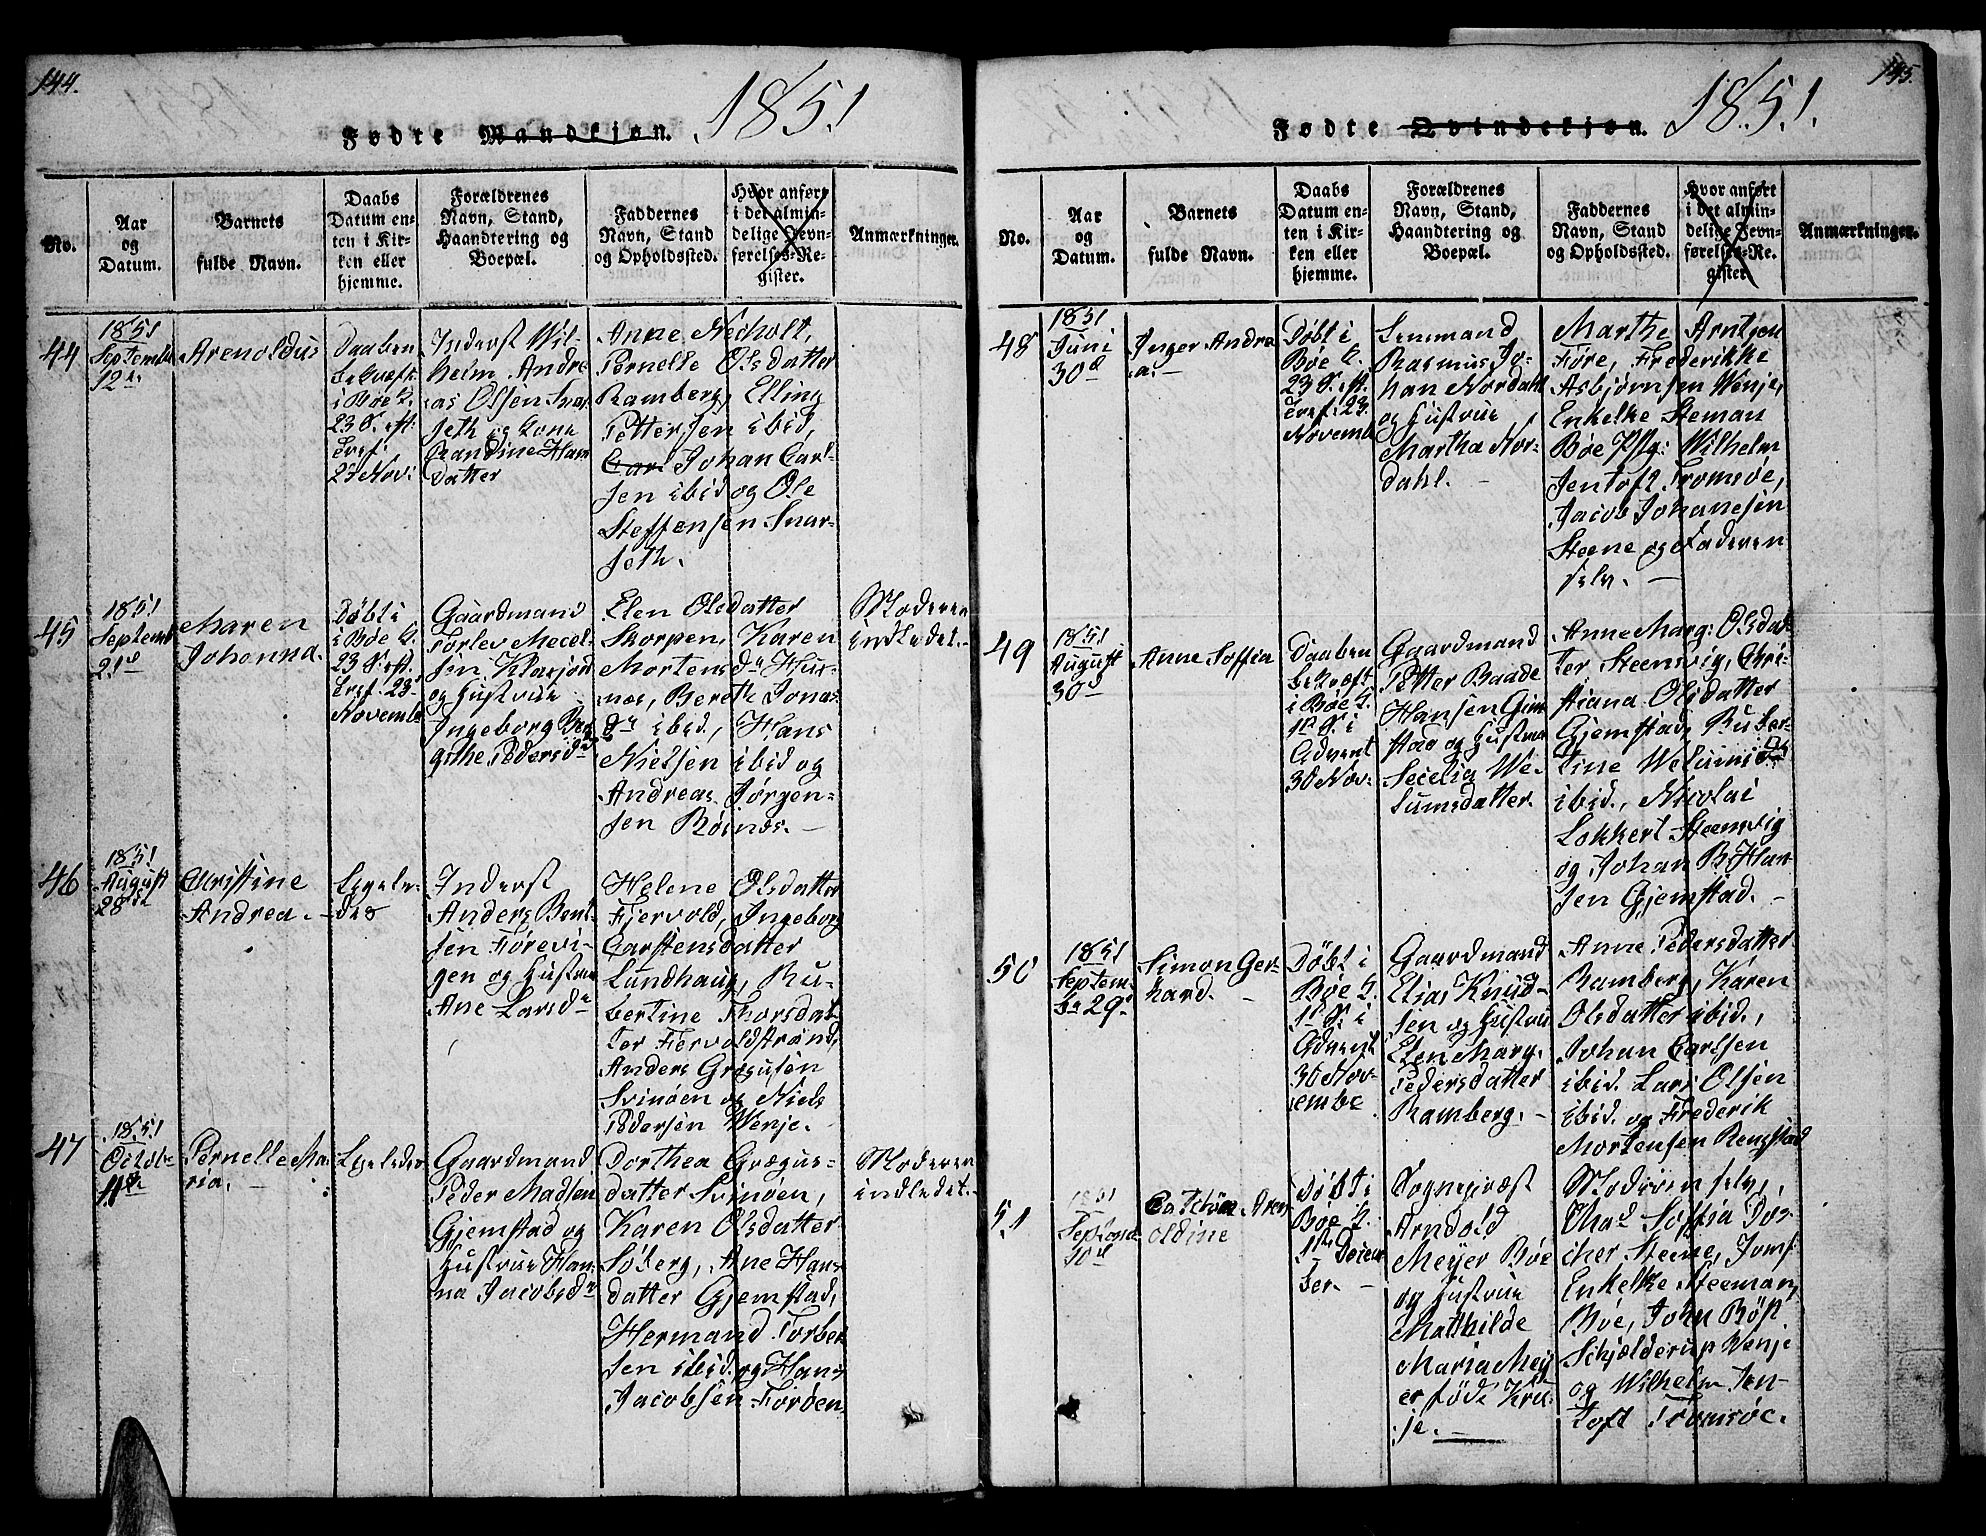 144.
Fødte Mandkjøn. 1851
No.
Aar
og
Datum.
Barnets
fulde Navn.
Daabs
Datum en-
ten i Kir-
ken eller
hjemme.
Forældrenes
Navn, Stand,
Haandtering og
Boepæl.
Faddernes
Navn, Stand
og Opholdssted.
Hvor anført
i det almin-
delige Jevn-
førelses-Re-
gister.
Anmærkninger.
44
1851
Septembr
12te
Arenoldus
Daaben
bekræft.
i Bøe K.
23 S. eft.
Tref:
23 Nov:
Inderst Wil-
helm Andre
as Olsen Snar
seth og Kone
Han
datter
Anne
Pernelle Olsdatter
Ramberg, Elling
Pettersen ibid,
Car Johan Carl-
sen ibid og Ole
Steffensen Snar-
seth.
45
1851
Septemb
21d
Maren
Johanna.
Døbt i
i Bøe K.
23 S. eft.
Tref: 23
Novembr
Gaardmand
Torlev
sen Klasjord
og Hustrue
Ingeborg Ber
githe Pedersdr
Elen Olsdatter
Skorpen, Karen
Mortens dr
Bereth Jonas
dr ibid, Hans
Nielsen ibid og
Andreas Jørgen-
sen
Moderen
indledet.
46
1851
August
28de
Christine
Andrea.
Ligele-
des
Inderst
Anders Bent
sen Førevi-
gen og Hustrue
Ane Larsdr
Helene Olsdatter
Fjervold, Ingeborg
Carstensdatter
Lundhaug, Ru-
bertine Thorsdat
ter Fjervoldstrand,
Anders Gregusen
Svinøen og Niels
Pedersen Wenje.
47
1851
Octobr
11te
Pernelle Ma
ria.
Ligeledes
Gaardmand
Peder Madsen
Gjemstad og
Hustrue Han
na Jacobsdr
Dorthea Grægus-
datter Svinøen,
Karen Olsdatter
Søberg, Ane Hans
datter Gjemstad,
Hermand Torber
sen ibid. og Hans
Jacobsen Forøen
Moderen
indledet.
145.
Fødte Qvindekjøn. 1851.
No.
Aar
og
Datum.
Barnets
fulde Navn.
Daabs
Datum en-
ten i Kir-
ken eller
hjemme.
Forældrenes
Navn, Stand,
Haandtering og
Boepæl.
Faddernes
Navn, Stand
og Opholdssted.
Hvor anført
i det almin-
delige Jevn-
førelses-Re-
gister.
Anmærkninger.
48
1851
Juni
30d
Inger Andre
a.
Døbt i
Bøe K.
23 S. eft.
Tref: 23
Novemb
Rasmus Jo-
han Nordahl
og Hustrue
Martha Nor-
dahl.
Marthe Arntsen
Føre, Frederikke
Asbjørnsen Wenje,
Enkelke Steman
Bøe Wilhelm
Jentoft Tromsøe,
Jacob Johanesen
Steene og Faderen
selv.
49
1851
August
30d
Anne Soffia
Daaben
bekræft
i Bøe K.
1st S. i
Advent
30 Nov.
Gaardmand
Petter Baade
Hansen Gjem
stad og Hustrue
Secelia We-
lumsdatter.
Anne Marg: Olsdat
ter Steensvig, Chri-
stiana Olsdatter
Gjemstad, Ruber-
tine Welumsdr
ibid, Nicolai
Lokkert Steensvig
og Johan B: Han
sen Gjemstad.
50
1851
Septem-
br 29d
Simon Ger-
hard.
Døbt i
Bøe K.
1st S. i
Advent
30 Nov-
embr
Gaardmand
Elias Knud-
sen og Hustrue
Elen Marg.
Pedersdatter
Ramberg.
Anne Pedersdatter
Ramberg, Karen
Olsdatter ibid,
Johan Carlsen
ibid. Lars Olsen
ibid. og Frederik
Mortensen Ringstad
51
1851
10d
oldine
Døbt i
Bøe K.
1st
Sognepræst
Arndold
Meyer Bøe
og Hustrue
Mathilde
Maria Mey
er født Kru-
se.
Moderen selv,
Soffia
Steene, Jomf
Enkelke Steeman,
Bøe, John
Schjelderup Wenje
og Wilhelm Jen-
toft Tromsøe.